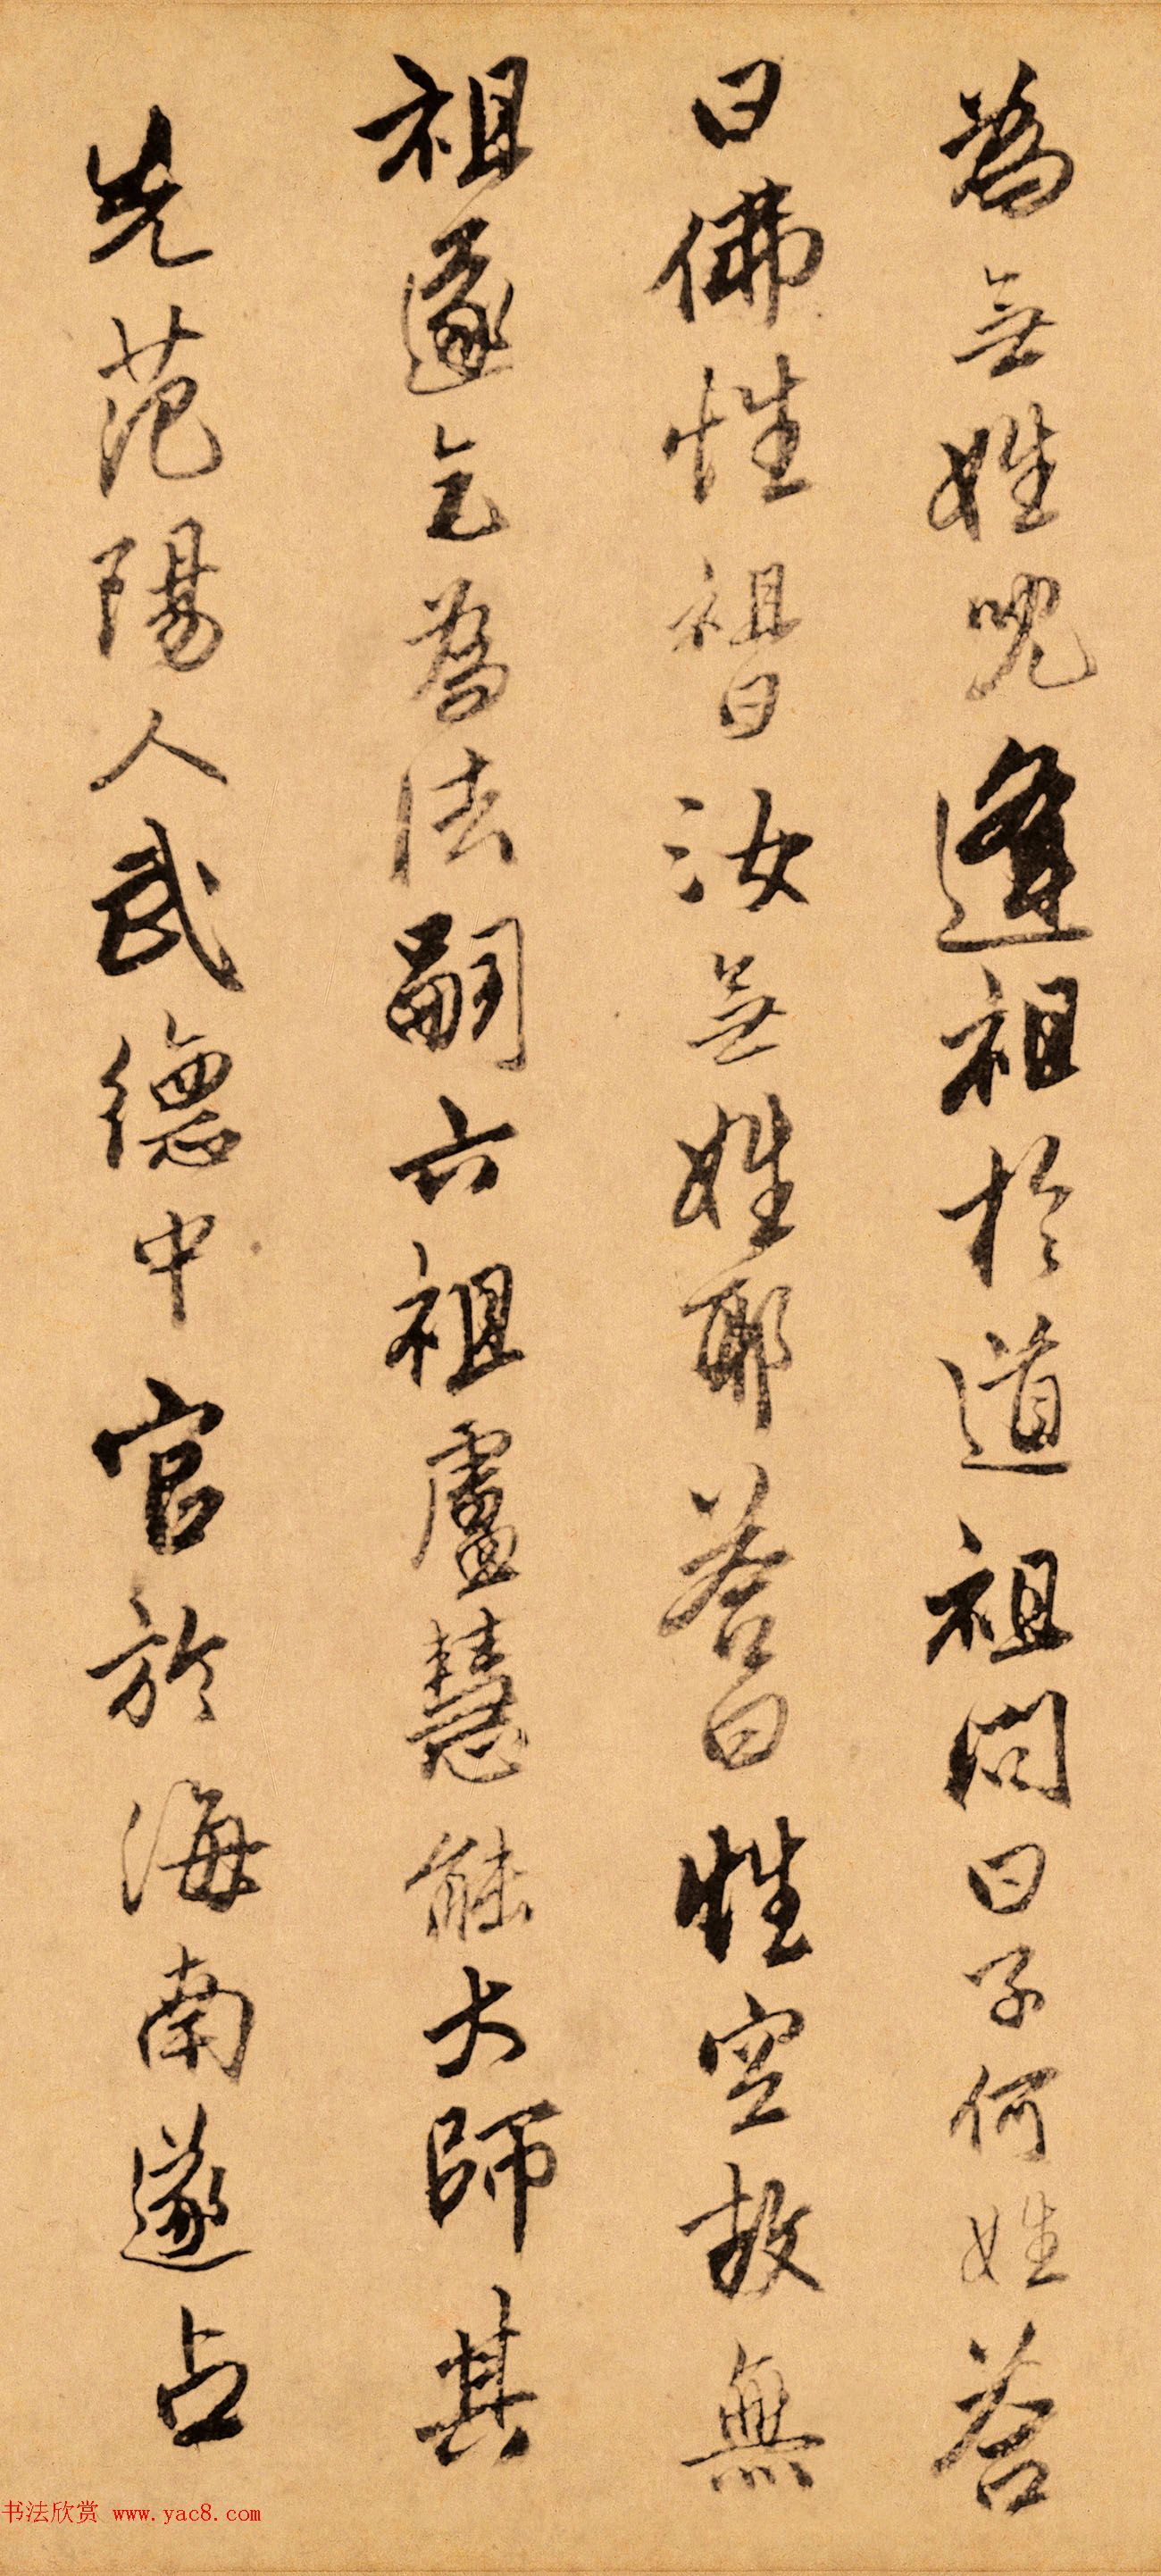 為無姓兒逢祖於道祖問曰子何姓答
曰佛性祖曰汝無姓耶答曰性空故無
祖遂乞為法嗣六祖盧慧能大師其
先范陽人武德中官於海南遂占
书法欣赏 www.yac8.com